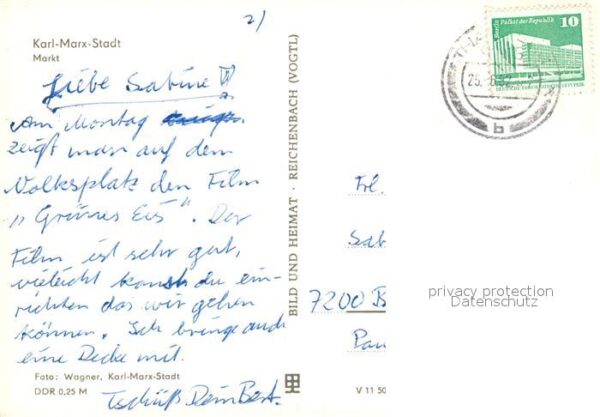 2)
Karl-Marx-Stadt
Markt
Liebe Sabine!
am Montag
zeigt man auf dem
Volksplatz den Film
„Grünes Eis". Der
Film ist sehr gut,
vieleicht kannst du ein-
richten das wir gehen
können. Ich bringe auch
eine Decke mit.
Tschüß Dein Bert.
Foto: Wagner, Karl-Marx-Stadt
DDR 0,25 M
BILD UND HEIMAT · REICHENBACH (VOGTL)
V 11 50
Berlin Palast der Republik
10
b
Frl.
Sab
7200 B
Pau
privacy protection
Datenschutz